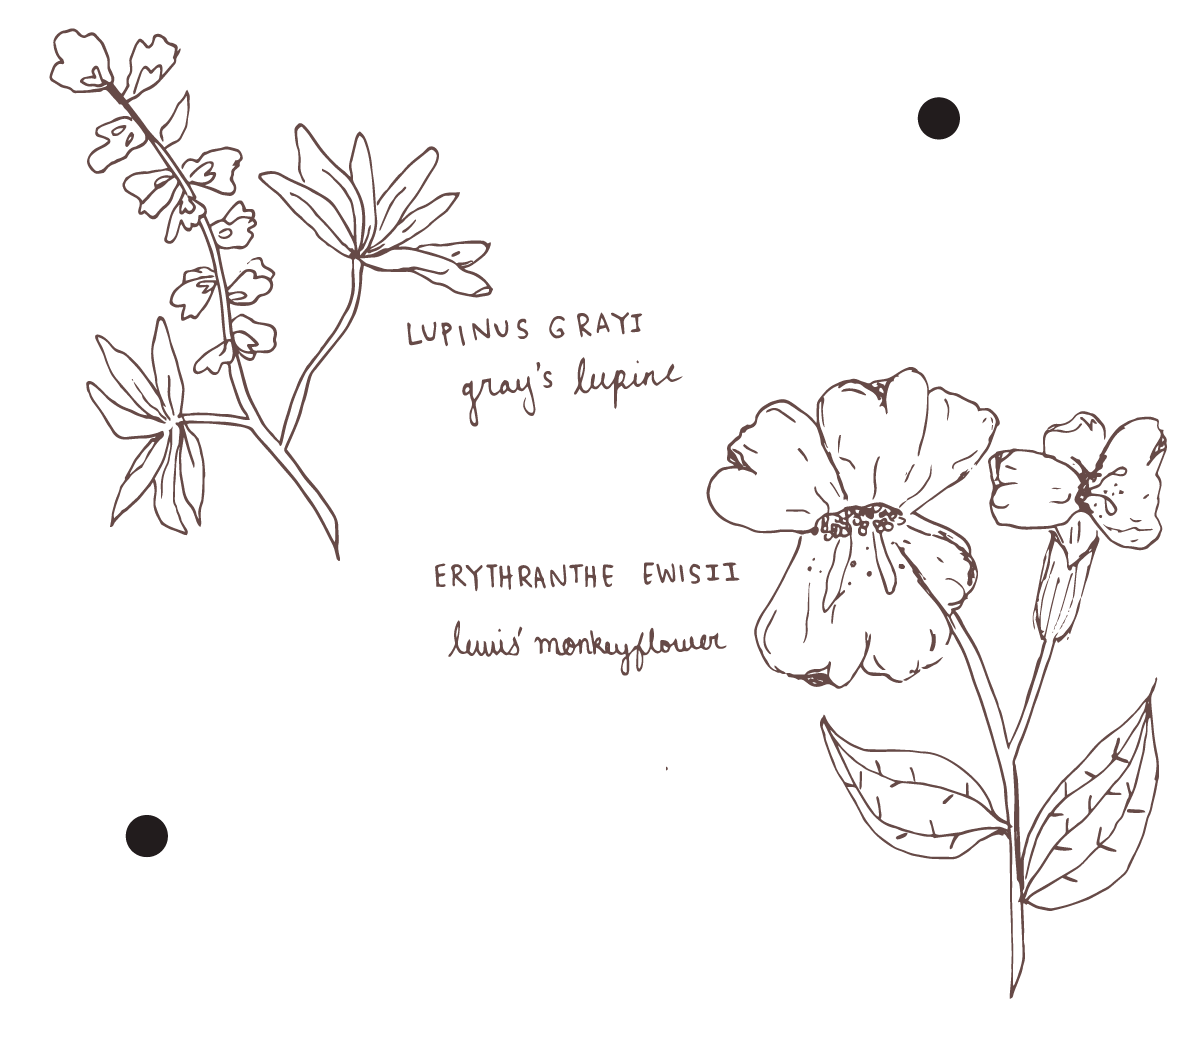 LUPINUS GRAYI
gray's lupine
ERYTHRANTHE EWISII
lewis' monkeyflower